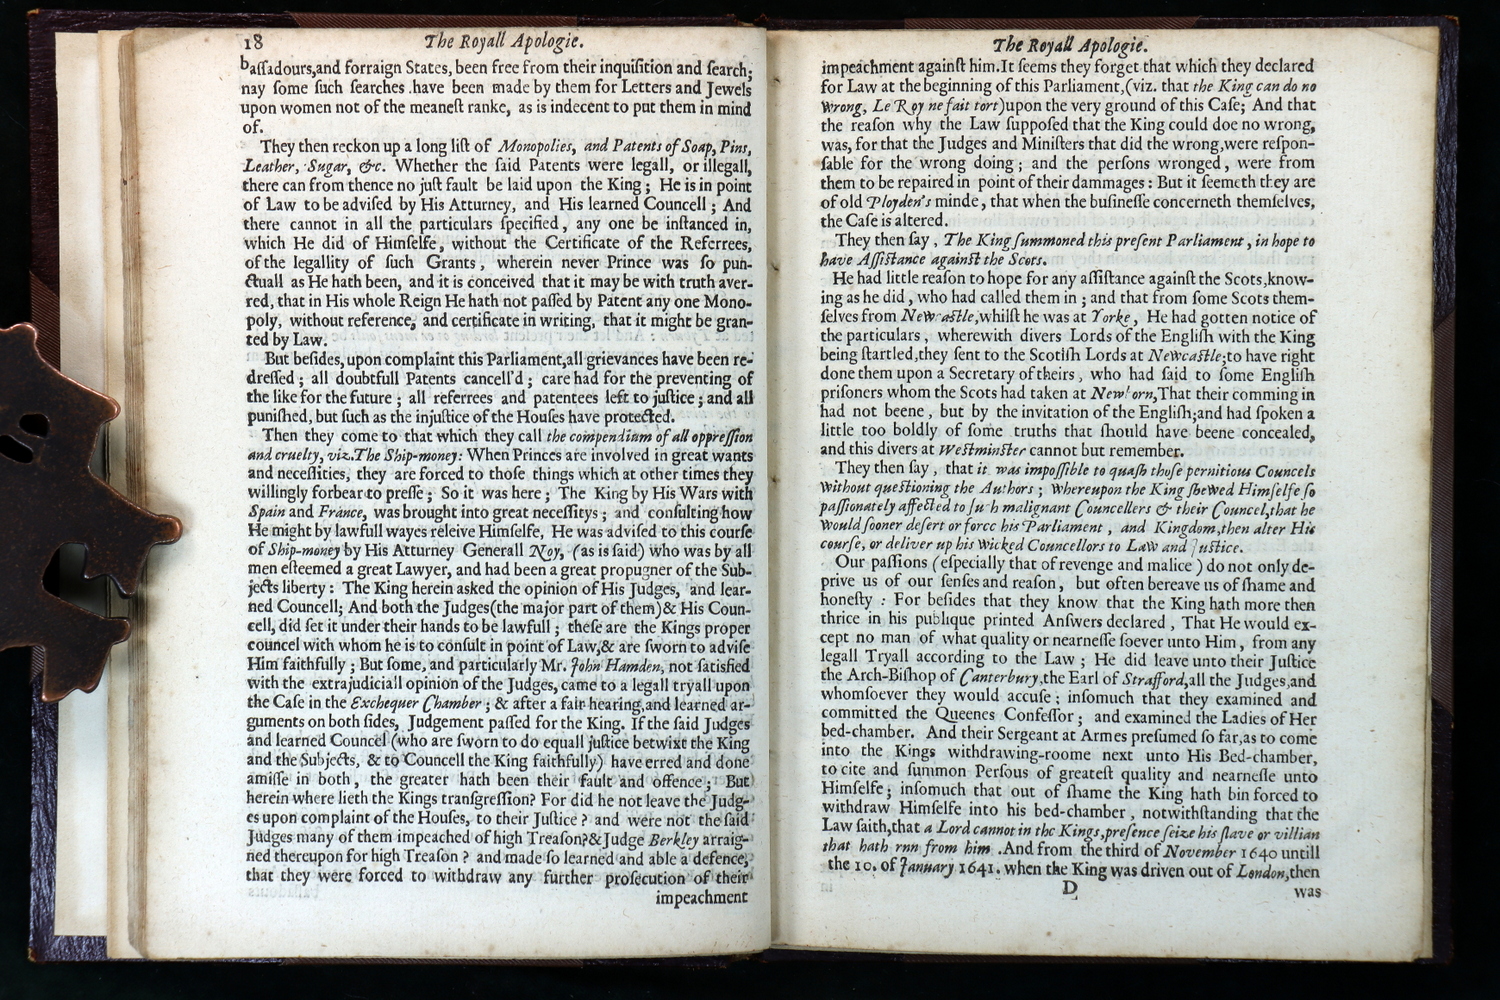 18
The Royall Apologie.
baſſadours,and forraign States, been free from their inquiſition and ſearch;
nay ſome ſuch ſearches have been made by them for Letters and Jewels
upon women not of the meaneſt ranke, as is indecent to put them in mind
of.
They then reckon up a long liſt of Monopolies, and Patents of Soap, Pins,
Leather, Sugar, &c. Whether the ſaid Patents were legall, or illegall,
there can from thence no juſt fault be laid upon the King; He is in point
of Law to be adviſed by His Atturney, and His learned Councell; And
there cannot in all the particulars ſpecified, any one be inſtanced in,
which He did of Himſelfe, without the Certificate of the Referrees,
of the legallity of ſuch Grants, wherein never Prince was ſo pun-
ctuall as He hath been, and it is conceived that it may be with truth aver-
red, that in His whole Reign He hath not paſſed by Patent any one Mono-
poly, without reference, and certificate in writing, that it might be gran-
ted by Law.
But beſides, upon complaint this Parliament,all grievances have been re-
dreſſed; all doubtfull Patents cancell'd; care had for the preventing of
the like for the future; all referrees and patentees left to juſtice; and all
puniſhed, but ſuch as the injuſtice of the Houſes have protected.
Then they come to that which they call the compendium of all oppreſſion
and cruelty, viz.The Ship-money: When Princes are involved in great wants
and neceſſities, they are forced to thoſe things which at other times they
willingly forbear to preſſe; So it was here; The King by His Wars with
Spain and France, was brought into great neceſſitys; and conſulting how
He might by lawfull wayes releive Himſelfe, He was adviſed to this courſe
of Ship-money by His Attorney Generall Noy, (as is ſaid) who was by all
men eſteemed a great Lawyer, and had been a great propugner of the Sub-
jects liberty: The King herein asked the opinion of His Judges, and lear-
ned Councell; And both the Judges(the major part of them)& His Coun-
cell, did ſet it under their hands to be lawfull; theſe are the Kings proper
councel with whom he is to conſult in point of Law,& are ſworn to adviſe
Him faithfully; But ſome, and particularly Mr. John Hamden, not ſatisfied
with the extrajudiciall opinion of the Judges, came to a legall tryall upon
the Caſe in the Exchequer Chamber; & after a fair hearing,and learned ar-
guments on both ſides, Judgement paſſed for the King. If the ſaid Judges
and learned Councel (who are ſworn to do equall juſtice betwixt the King
and the Subjects, & to Councell the King faithfully) have erred and done
amiſſe in both, the greater hath been their fault and offence; But
herein where lieth the Kings tranſgreſſion? For did he not leave the Judg-
es upon complaint of the Houſes, to their Juſtice? and were not the ſaid
Judges many of them impeached of high Treaſon?& Judge Berkley arraig-
ned thereupon for high Treaſon? and made ſo learned and able a defence,
that they were forced to withdraw any further proſecution of their
impeachment
The Royall Apologie.
impeachment againſt him. It ſeems they forget that which they declared
for Law at the beginning of this Parliament,(viz. that the King can do no
wrong, Le Roy ne fait tort)upon the very ground of this Caſe; And that
the reaſon why the Law ſuppoſed that the King could doe no wrong,
was, for that the Judges and Miniſters that did the wrong,were reſpon-
ſable for the wrong doing; and the perſons wronged, were from
them to be repaired in point of their dammages: But it ſeemeth they are
of old Ployden's minde, that when the buſineſſe concerneth themſelves,
the Caſe is altered.
They then ſay, The King ſummoned this preſent Parliament, in hope to
have Aſſiſtance againſt the Scots.
He had little reaſon to hope for any aſſiſtance againſt the Scots,know-
ing as he did, who had called them in; and that from ſome Scots them-
ſelves from Newcastle,whilſt he was at Yorke, He had gotten notice of
the particulars, wherewith divers Lords of the Engliſh with the King
being ſtartled,they ſent to the Scotiſh Lords at Newcaſtle;to have right
done them upon a Secretary of theirs, who had ſaid to ſome Engliſh
priſoners whom the Scots had taken at Newborn,That their comming in
had not beene, but by the invitation of the Engliſh;and had ſpoken a
little too boldly of ſome truths that ſhould have beene concealed,
and this divers at Weſtminſter cannot but remember.
They then ſay, that it was impoſſible to quaſh thoſe pernitious Councels
without queſtioning the Authors; whereupon the King ſhewed Himſelfe ſo
paſſionately affected to ſuch malignant Councellers & their Councel,that he
would ſooner deſert or force his Parliament, and Kingdom,then alter His
courſe, or deliver up his wicked Councellors to Law and Juſtice.
Our paſſions (eſpecially that of revenge and malice) do not only de-
prive us of our ſenſes and reaſon, but often bereave us of ſhame and
honeſty: For beſides that they know that the King hath more then
thrice in his publique printed Anſwers declared, That He would ex-
cept no man of what quality or nearneſſe ſoever unto Him, from any
legall Tryall according to the Law; He did leave unto their Juſtice
the Arch-Biſhop of Canterbury,the Earl of Strafford,all the Judges,and
whomſoever they would accuſe; inſomuch that they examined and
committed the Queenes Confeſſor; and examined the Ladies of Her
bed-chamber. And their Sergeant at Armes preſumed ſo far,as to come
into the Kings withdrawing-roome next unto His Bed-chamber,
to cite and ſummon Perſous of greateſt quality and nearneſſe unto
Himſelfe; inſomuch that out of ſhame the King hath bin forced to
withdraw Himſelfe into his bed-chamber, notwithſtanding that the
Law ſaith,that a Lord cannot in the Kings,preſence ſeize his ſlave or villian
that hath rnn from him .And from the third of November 1640 untill
the 10. of January 1641. when the King was driven out of London,then
D
was